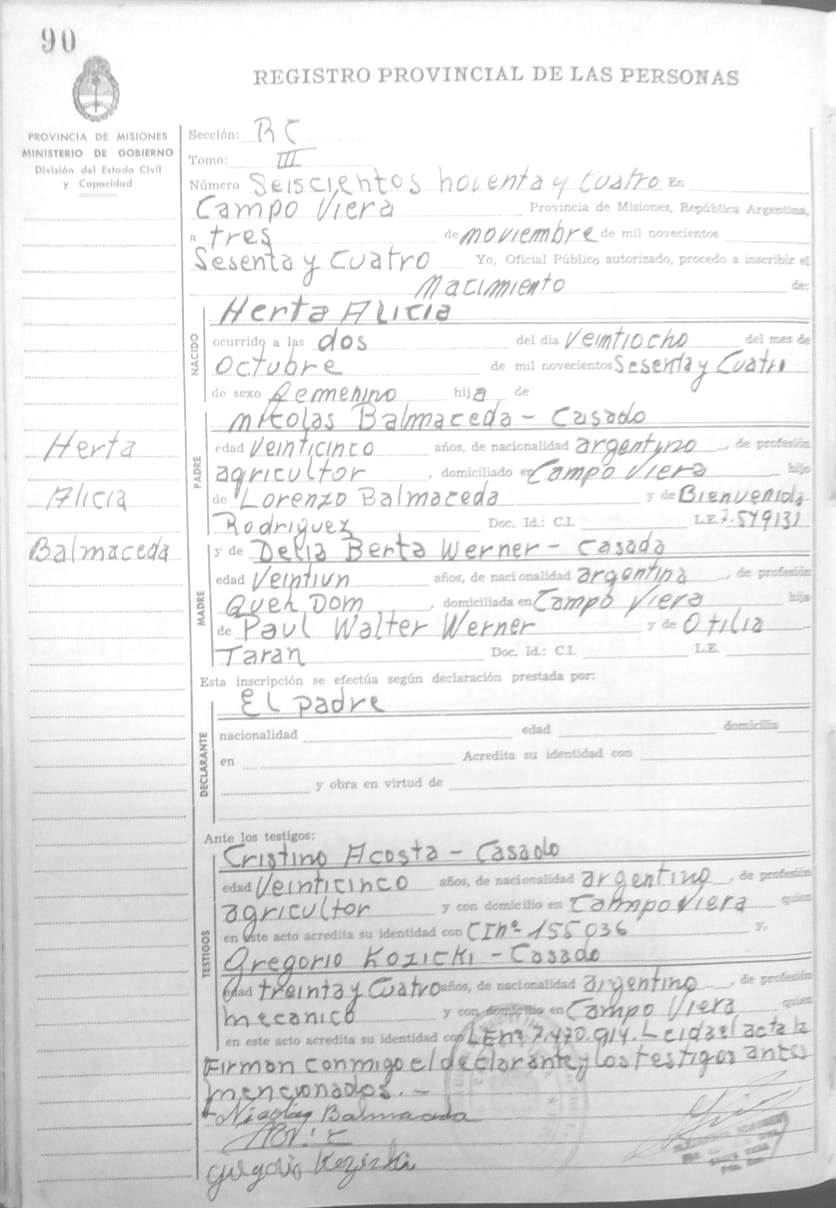 90
REGISTRO PROVINCIAL DE LAS PERSONAS
PROVINCIA DE MISIONES
MINISTERIO DE GOBIERNO
División del Estado Civil
y Capacidad
Sección: RC
Tomo: III
Número Seiscientos noventa y Cuatro En
Campo Viera Provincia de Misiones, República Argentina,
a tres de noviembre de mil novecientos
Sesenta y Cuatro Yo, Oficial Público autorizado, procedo a inscribir el
Nacimiento de:
NACIDO
Herta Alicia
ocurrido a las dos del día Veintiocho del mes de
Octubre de mil novecientos Sesenta y Cuatro
de sexo femenino hija de
PADRE
Nicolas Balmaceda - Casado
edad Veinticinco años, de nacionalidad argentino, de profesión
agricultor, domiciliado en Campo Viera hijo
de Lorenzo Balmaceda y de Bienvenida
Rodriguez Doc. Id.: C.I. L.E. 7.579131
Herta
Alicia
Balmaceda
MADRE
y de Delia Berta Werner - Casada
edad Veintiun años, de nacionalidad argentina, de profesión
Queh Dom, domiciliada en Campo Viera hija
de Paul Walter Werner y de Otilia
Taran Doc. Id.: C.I. L.E.
Esta inscripción se efectúa según declaración prestada por:
El padre
DECLARANTE
nacionalidad edad domicilia
en Acredita su identidad con
y obra en virtud de
Ante los testigos:
TESTIGOS
Cristino Acosta - Casado
edad Veinticinco años, de nacionalidad argentino, de profesión
agricultor y con domicilio en Campo Viera quien
en este acto acredita su identidad con CI nº 155036 y,
Gregorio Kozicki - Casado
edad treinta y Cuatro años, de nacionalidad argentino, de profesión
mecanico y con domicilio en Campo Viera quien
en este acto acredita su identidad con LE nº 7.470.914. Leida el acta la
Firman conmigo el declarante y los testigos antes
mencionados. -
Nicolas Balmaceda
Gregorio Kozicki